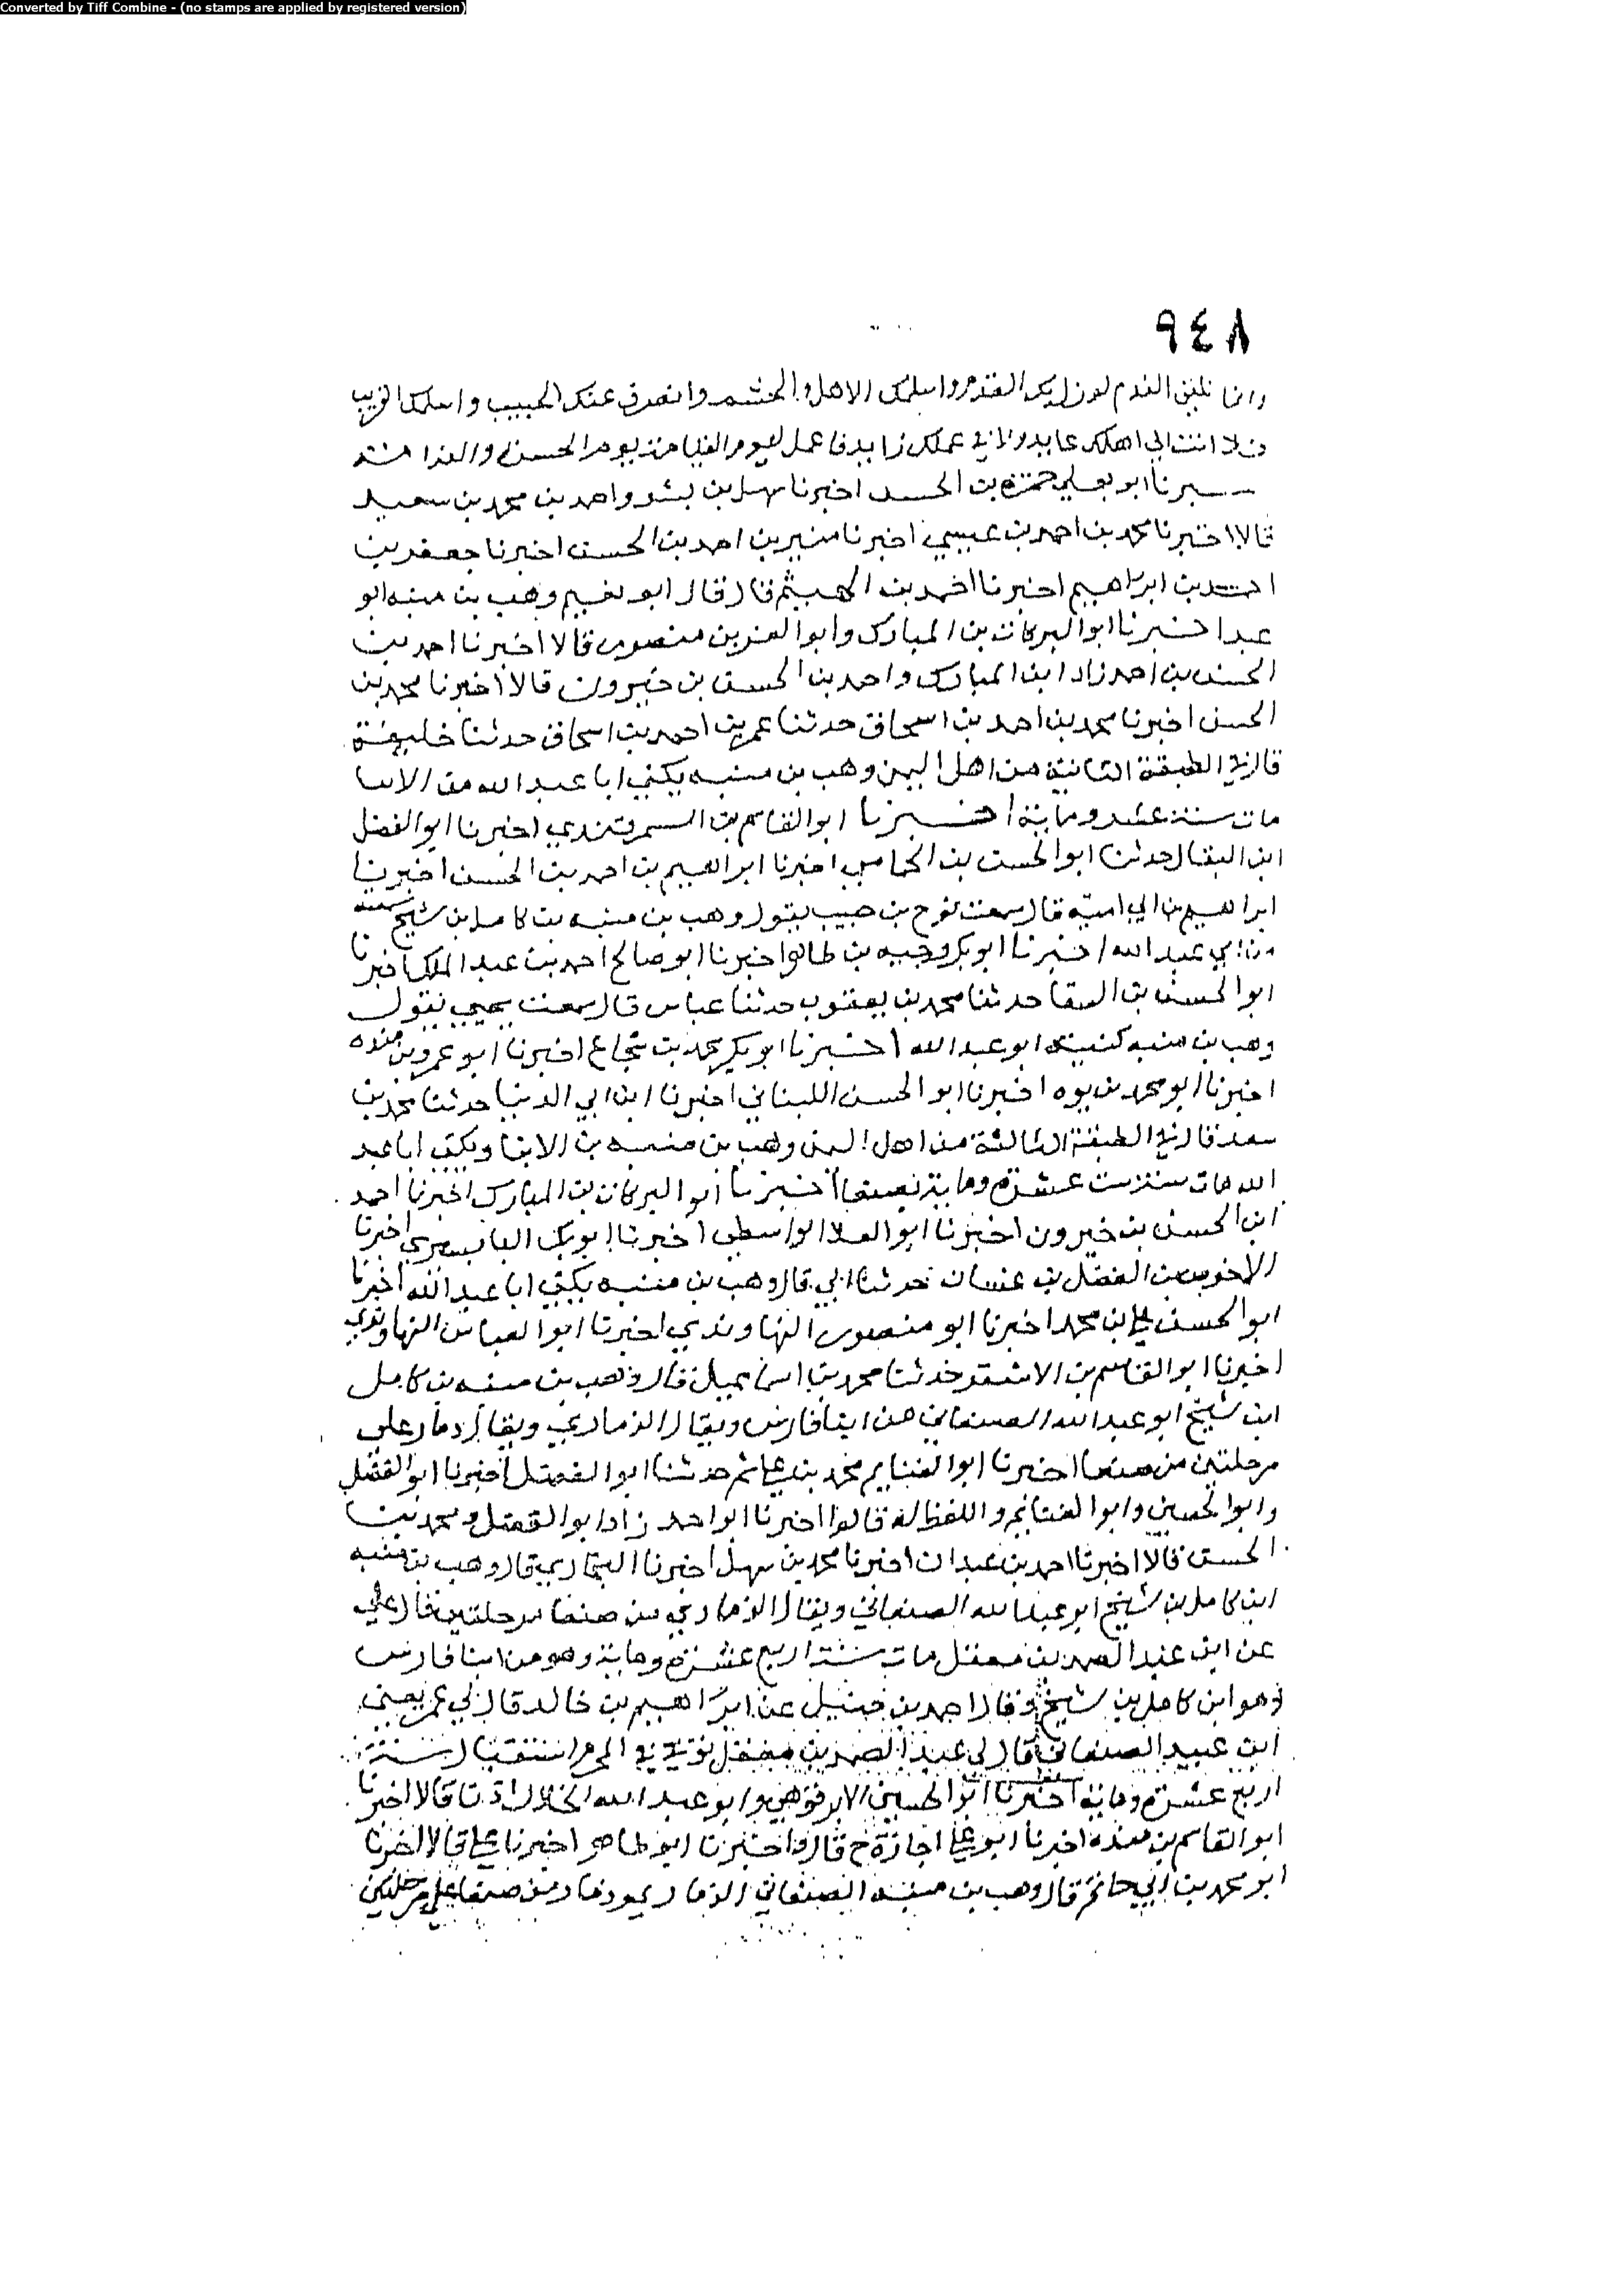 Converted by Tiff Combine - (no stamps are applied by registered version)
٩٤٨
الندم لو زل بك القدم واسلمك الاهل والحشم وانصرف عنك الحبيب واسلمك القريب
فلا انت الى اهلك عايد ولا في عملك زايد فاعمل ليوم القيامة يوم الحسرة والندامة
ابو يعلي حمزة بن الحسن اخبرنا سهل بن بشر واحمد بن محمد بن سعيد
قالا اخبرنا محمد بن احمد بن عيسي اخبرنا منير بن احمد بن الحسن اخبرنا جعفر بن
احمد بن ابراهيم اخبرنا احمد بن الهيثم قال قال ابو نعيم وهب بن منبه ابو
عبد اخبرنا ابو البركات بن المبارك وابو العز بن منصور قالا اخبرنا احمد بن
الحسن بن احمد زاد ابن المبارك واحمد بن الحسن بن خيرون قالا اخبرنا محمد بن
الحسن اخبرنا محمد بن احمد بن اسحاق حدثنا عمر بن احمد بن اسحاق حدثنا خليفة
قال في الطبقة الثانية من اهل اليمن وهب بن منبه يكني ابا عبد الله من الابنا
مات سنة عشر وماية اخبرنا ابو القاسم بن السمرقندي اخبرنا ابو الفضل
ابن البقال حدثنا ابو الحسن بن الحمامي اخبرنا ابراهيم بن احمد بن الحسن اخبرنا
ابراهيم بن ابي امية قال سمعت نوح بن حبيب يقول وهب بن منبه بن كامل بن شيخ
ابي عبد الله اخبرنا ابو بكر وجيه بن طاهر اخبرنا ابو صالح احمد بن عبد الملك اخبرنا
ابو الحسن بن السقا حدثنا محمد بن يعقوب حدثنا عباس قال سمعت يحيي يقول
وهب بن منبه كنيته ابو عبد الله اخبرنا ابو بكر محمد بن شجاع اخبرنا ابو عمرو بن منده
اخبرنا ابو محمد بن يوه اخبرنا ابو الحسن اللبناني اخبرنا ابن ابي الدنيا حدثنا محمد بن
سعد قال في الطبقة الثالثة من اهل اليمن وهب بن منبه بن الابنا ويكني ابا عبد
الله مات سنة ست عشرة وماية بصنعا اخبرنا ابو البركات بن المبارك اخبرنا احمد
ابن الحسن بن خيرون اخبرنا ابو العلا الواسطي اخبرنا ابو بكر البابسيري اخبرنا
الاحوص بن الفضل بن غسان حدثنا ابي قال وهب بن منبه يكني ابا عبد الله اخبرنا
ابو الحسن علي بن محمد اخبرنا ابو منصور النهاوندي اخبرنا ابو العباس النهاوندي
اخبرنا ابو القاسم بن الاشقر حدثنا محمد بن اسماعيل قال وهب بن منبه بن كامل
ابن شيخ ابو عبد الله الصنعاني من ابنا فارس ويقال الذماري ويقال ذمار علي
مرحلتين من صنعا اخبرنا ابو الغنايم محمد بن علي ثم حدثنا ابو الفضل اخبرنا ابو الفضل
وابو الحسين وابو الغنايم واللفظ له قالوا اخبرنا ابو احمد زاد ابو الفضل ومحمد بن
الحسن قالا اخبرنا احمد بن عبدان اخبرنا محمد بن سهل اخبرنا البخاري قال وهب بن منبه
ابن كامل بن شيخ ابو عبد الله الصنعاني ويقال الذماري من صنعا مرحلتين قال علي
عن ابن عبد الصمد بن معقل مات سنة اربع عشرة وماية وهو من ابنا فارس
وهو ابن كامل بن شيخ وقال احمد بن حنبل عن ابراهيم بن خالد قال لي عمر يعني
ابن عبيد الصنعاني قال لي عبد الصمد بن معقل توفي في المحرم استقبال سنة
اربع عشرة وماية اخبرنا ابو الحسين الابرقوهي وابو عبد الله الخلال اذنا قالا اخبرنا
ابو القاسم بن منده اخبرنا ابو علي اجازة ح قال واخبرنا ابو طاهر اخبرنا علي قالا اخبرنا
ابو محمد بن ابي حاتم قال وهب بن منبه الصنعاني الذماري وذمار من صنعا علي مرحلتين